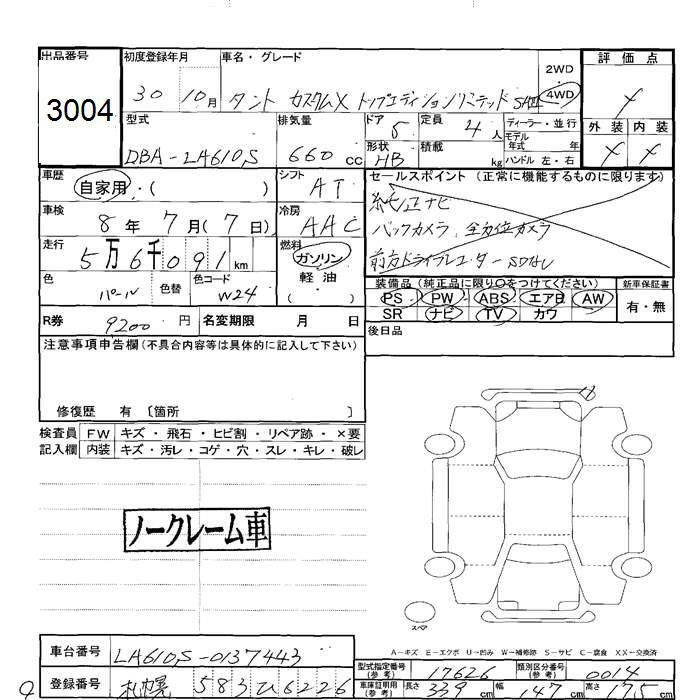 出品番号 初度登録年月 車名・グレード 2WD・4WD 評価点
3004 30 10月 タント カスタムX トップエディションリミテッド SAⅢ
型式 排気量 ドア 定員 ディーラー・並行 外装 内装
DBA-LA610S 660cc 5 4人 モデル年式 年
形状 HB 積載 kg ハンドル 左・右
車歴 シフト セールスポイント(正常に機能するものに限ります)
自家用・( ) AT 純正ナビ
車検 冷房 バックカメラ、全方位カメラ
8年7月(7日) AAC 前方ドライブレコーダー SDなし
走行 5万6千091km 燃料 ガソリン・軽油・( )
色 パール 色替 色コード W24
装備品(純正品に限り○をつけてください) 新車保証書
PS PW ABS エアB AW 有・無
SR ナビ TV カワ
R券 9200円 名変期限 月 日 後日品
注意事項申告欄(不具合内容等は具体的に記入して下さい)
修復歴 有〔箇所 〕
検査員記入欄 FW キズ・飛石・ヒビ割・リペア跡・×要
内装 キズ・汚レ・コゲ・穴・スレ・キレ・破レ
ノークレーム車
スペア
A-キズ E-エクボ U-凹み W-補修跡 S-サビ C-腐食 XX-交換済
車台番号 LA610S-0137443 型式指定番号(参考) 17626 類別区分番号(参考) 0014
登録番号 札幌 583 ひ 6226 車庫証明用(参考) 長さ 339cm 幅 147cm 高さ 175cm